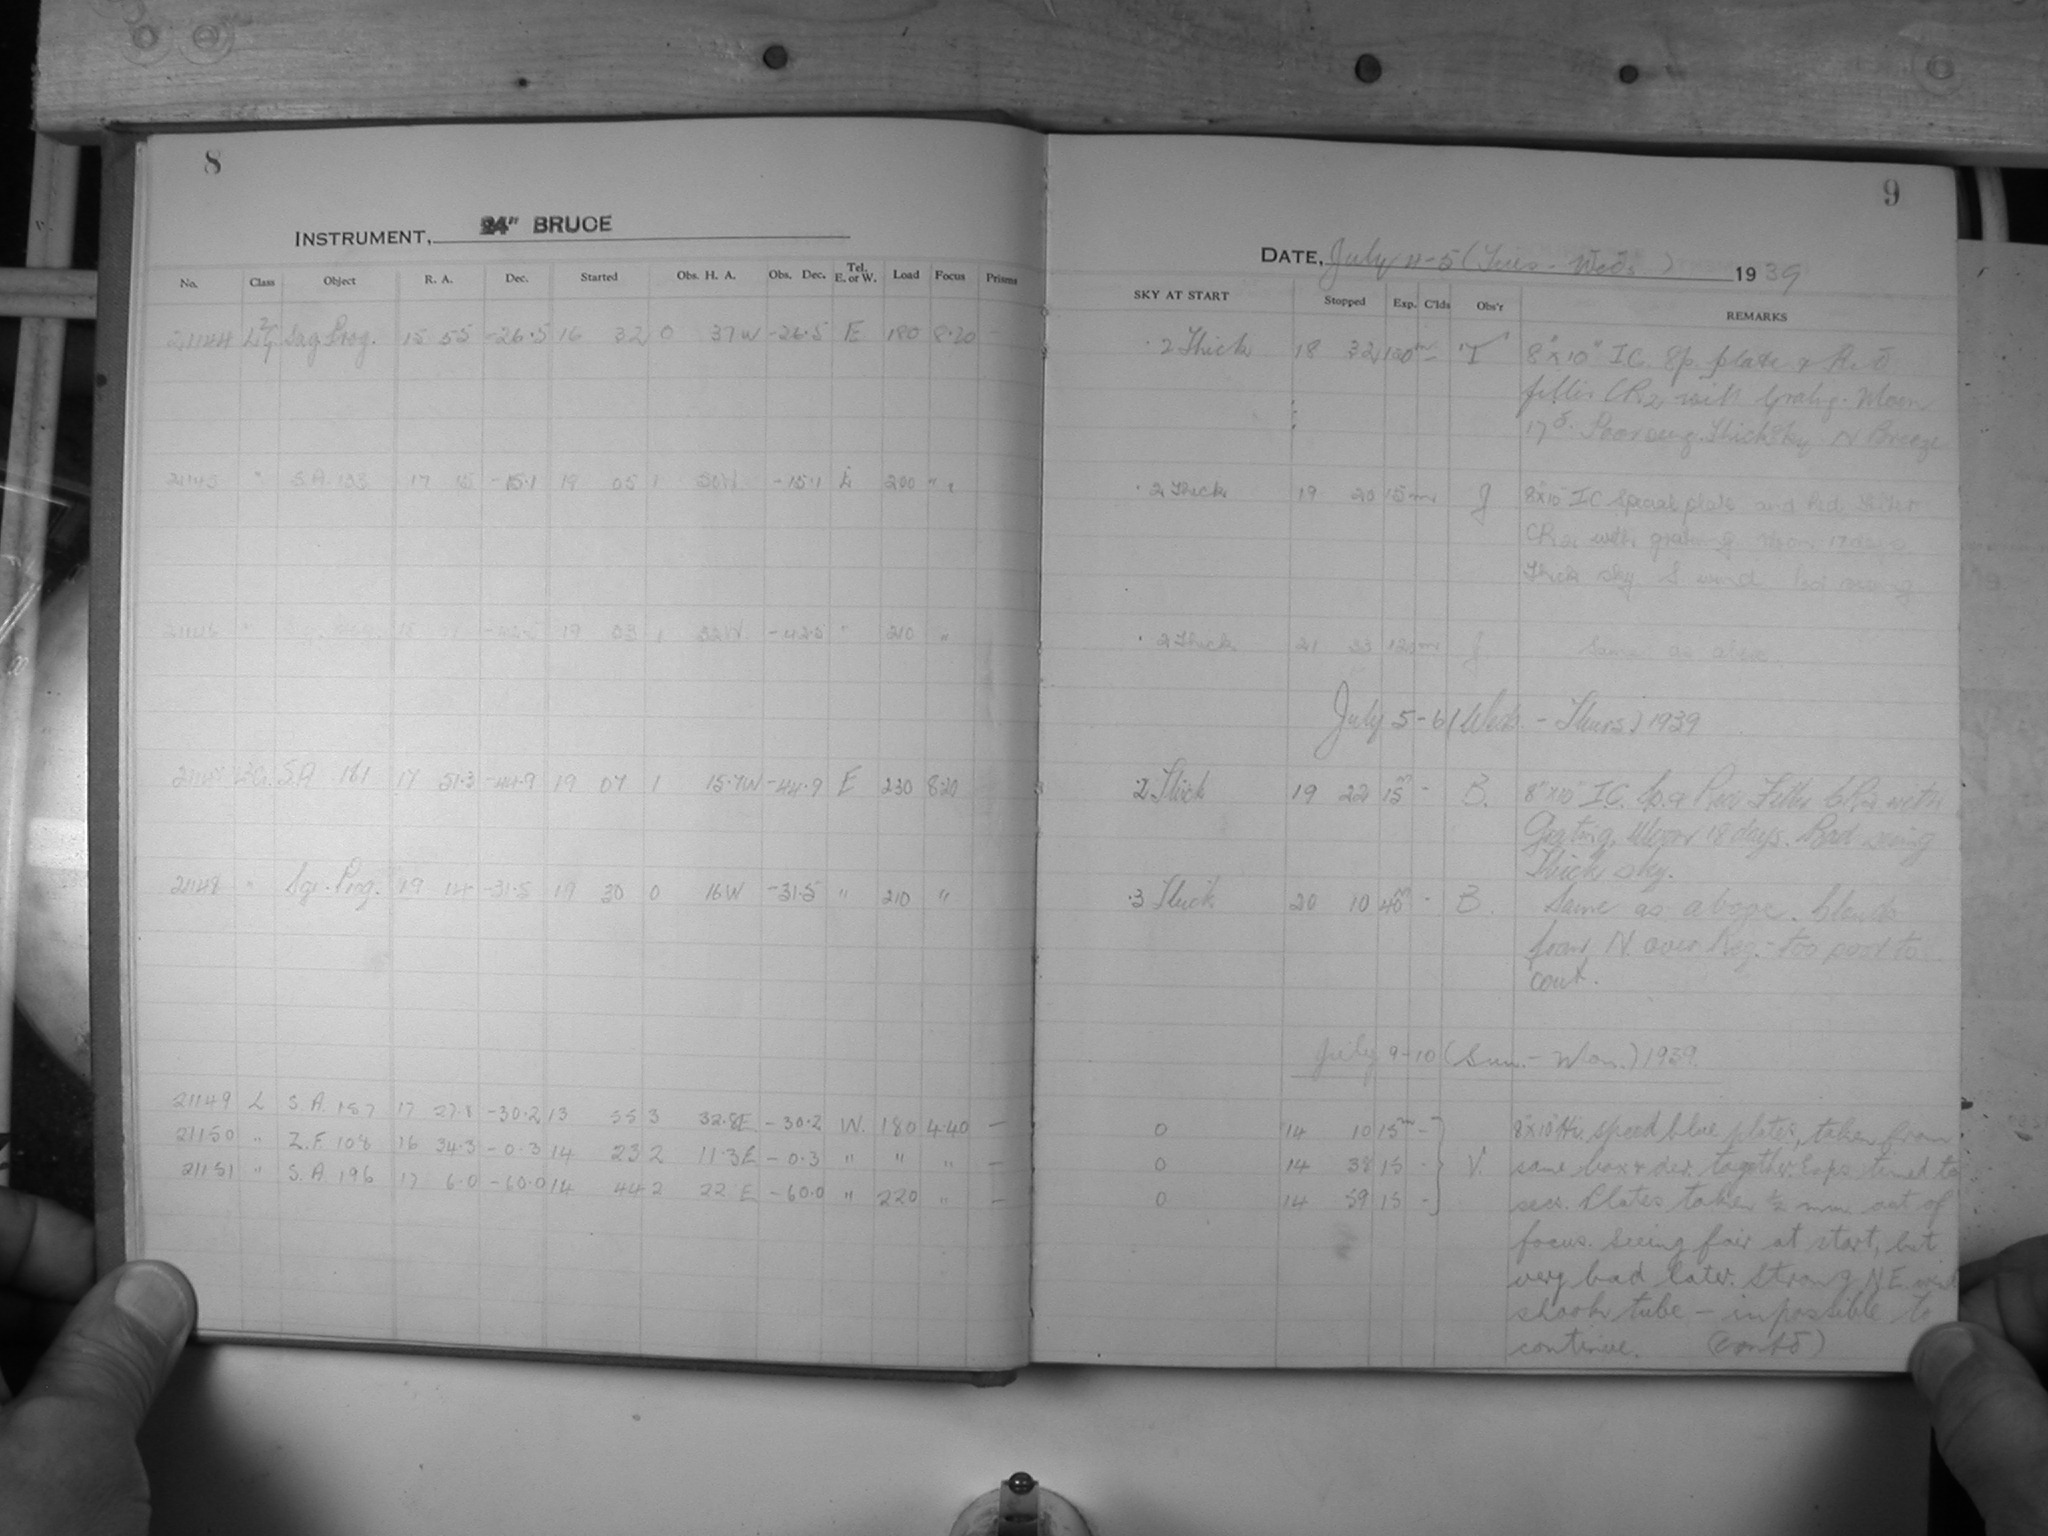 8
INSTRUMENT, 24" BRUCE
No. Class Object R. A. Dec. Started Obs. H. A. Obs. Dec. Tel. E. or W. Load Focus Prisms
21144 Sag Prog. 15 55 -26.5 16 32 0 37W -26.5 E 180 8.20 -
21145 " S.A. 17 15 -15.1 19 05 1 50W -15.1 200 "
" 19 03 1 32W -42.5 " 210 "
S.A. 181 17 51.3 -44.9 19 07 1 15.7W -44.9 E 230 8.20
21148 " Sgr. Prog. 19 14 -31.5 19 30 0 16W -31.5 " 210 "
21149 L S.A. 157 17 27.8 -30.2 13 55 3 32.8E -30.2 W. 180 4.40 -
21150 " Z.F. 108 16 34.3 -0.3 14 23 2 11.3E -0.3 " " " -
21151 " S.A. 196 17 6.0 -60.0 14 44 2 22 E -60.0 " 220 " -
9
DATE, July 4-5 (Tues - Weds) 1939
SKY AT START Stopped Exp. C'lds Obs'r REMARKS
.2 Thick 18 32 120m - T 8"x10" I.C. Sp. plate & Red
filter CR2 with Grating. Moon
17d. Poor seeing. Thick Sky N Breeze
.2 Thick 19 20 15m J 8"x10" IC Special plate and Red filter
CR2 with grating Moon 17 days
Thick sky S wind bad seeing
.2 Thick 21 33 J Same as above.
July 5-6 (Weds. - Thurs) 1939
.2 Thick 19 22 15m - B. 8"x10" I.C. Sp. & Red Filter CR2 with
Grating, Moon 18 days. Bad seeing
Thick sky.
.3 Thick 20 10 40m - B. Same as above. Clouds
from N. over Reg. - too poor to
cont.
July 9-10 (Sun. - Mon.) 1939.
0 14 10 15m - 8"x10" Hi. speed blue plates, taken from
0 14 38 15 - V. same box & dev. together. Exps. timed to
0 14 59 15 - secs. Plates taken ½ mm. out of
focus. Seeing fair at start, but
very bad later. Strong N.E. wind
shook tube - impossible to
continue. (contd)